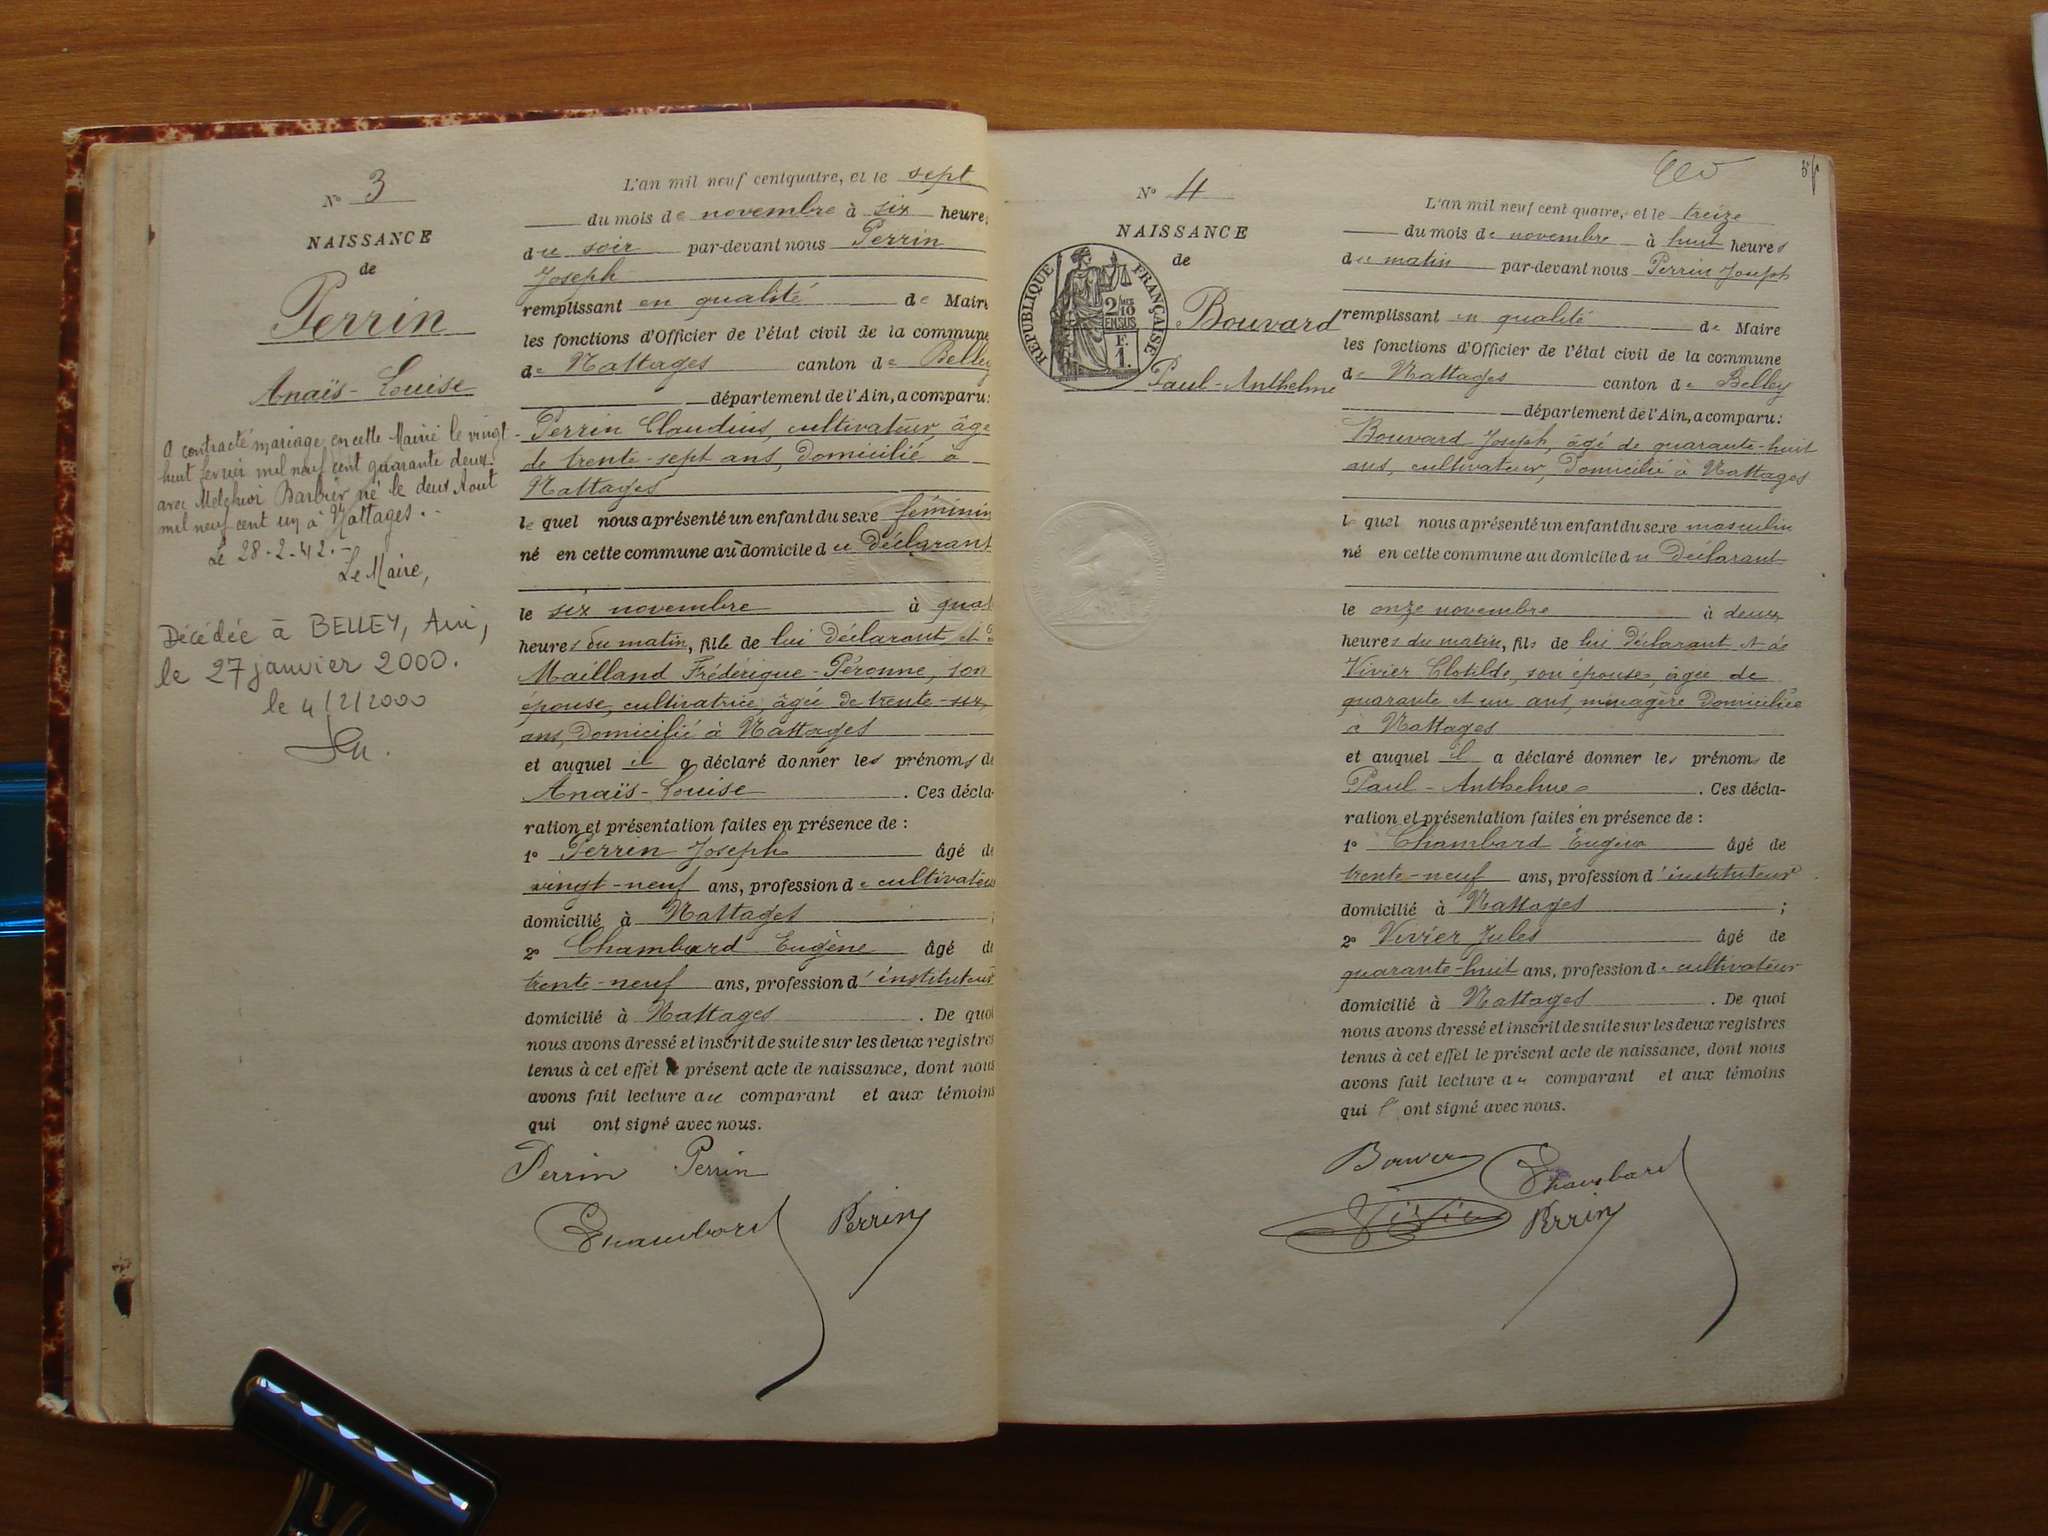 N° 3
NAISSANCE
de
Perrin
Anaïs-Louise
A contracté mariage en cette Mairie le vingt
huit février mil neuf cent quarante deux
avec Melchior Barbier né le deux Aout
mil neuf cent un à Nattages.-
Le 28.2.42.-
Le Maire,
Décédée à BELLEY, Ain,
le 27 janvier 2000.
le 4/2/2000
L'an mil neuf cent quatre, et le sept
du mois de novembre à six heures
du soir par-devant nous Perrin
Joseph
remplissant en qualité de Maire
les fonctions d'Officier de l'état civil de la commune
de Nattages canton de Belley
département de l'Ain, a comparu:
Perrin Claudius, cultivateur, âgé
de trente-sept ans, domicilié à
Nattages
le quel nous a présenté un enfant du sexe féminin
né en cette commune au domicile du déclarant
le six novembre à quat
heures du matin, fille de lui déclarant, et
Mailland Frédérique-Péronne, son
épouse, cultivatrice, âgée de trente-six
ans, domicilié à Nattages
et auquel il a déclaré donner les prénoms de
Anaïs-Louise. Ces décla-
ration et présentation faites en présence de:
1° Perrin Joseph âgé de
vingt-neuf ans, profession de cultivateur
domicilié à Nattages;
2° Chambard Eugène âgé de
trente-neuf ans, profession d'instituteur
domicilié à Nattages. De quoi
nous avons dressé et inscrit de suite sur les deux registres
tenus à cet effet le présent acte de naissance, dont nous
avons fait lecture au comparant et aux témoins
qui ont signé avec nous.
Perrin Perrin
Chambard Perrin
5
N° 4
NAISSANCE
de
RÉPUBLIQUE FRANÇAISE
2/10
EN SUS
F.
1.
Bouvard
Paul-Anthelme
L'an mil neuf cent quatre, et le treize
du mois de novembre à huit heures
du matin par-devant nous Perrin Joseph
remplissant en qualité de Maire
les fonctions d'Officier de l'état civil de la commune
de Nattages canton de Belley
département de l'Ain, a comparu:
Bouvard Joseph, âgé de quarante-huit
ans, cultivateur, domicilié à Nattages
le quel nous a présenté un enfant du sexe masculin
né en cette commune au domicile du déclarant
le onze novembre à deux
heures du matin, fils de lui déclarant et de
Vivier Clotilde, son épouse, âgée de
quarante et un ans, ménagère domiciliée
à Nattages
et auquel il a déclaré donner les prénoms de
Paul-Anthelme. Ces décla-
ration et présentation faites en présence de:
1° Chambard Eugène âgé de
trente-neuf ans, profession d'instituteur
domicilié à Nattages;
2° Vivier Jules âgé de
quarante-huit ans, profession de cultivateur
domicilié à Nattages. De quoi
nous avons dressé et inscrit de suite sur les deux registres
tenus à cet effet le présent acte de naissance, dont nous
avons fait lecture au comparant et aux témoins
qui ont signé avec nous.
Bouvard Chambard
Vivier Perrin